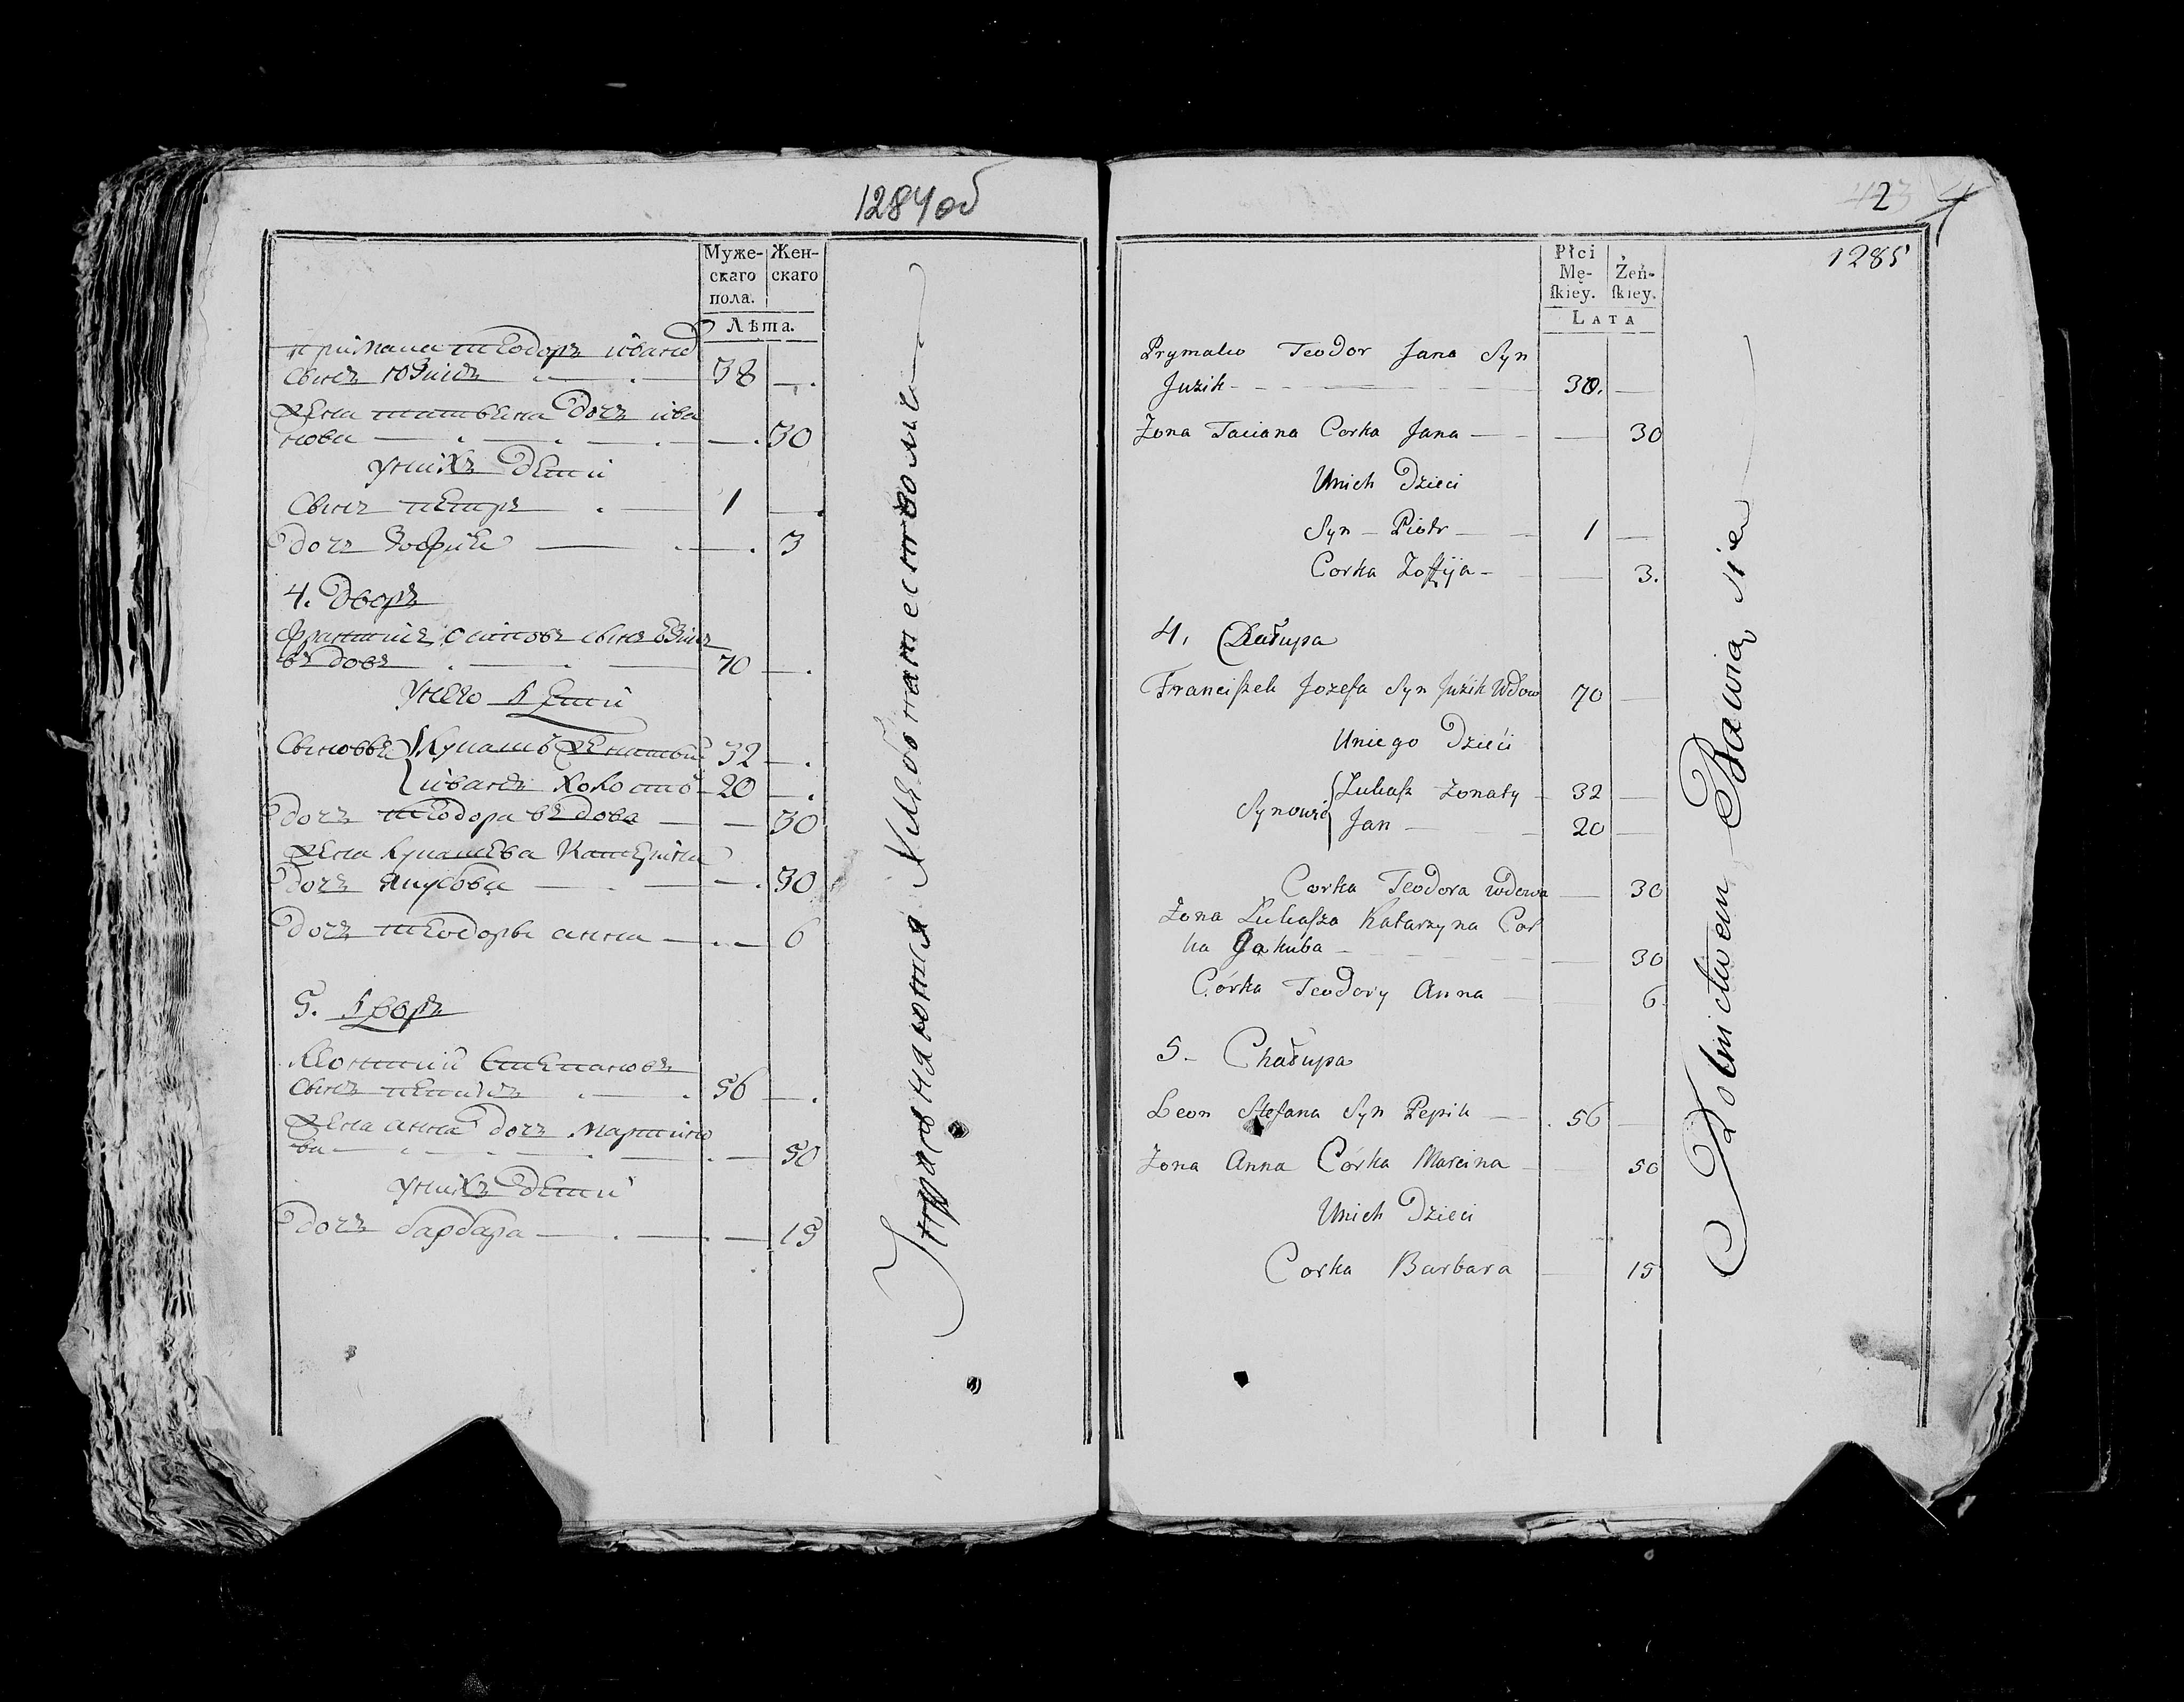 1284 об
Муже-
скаго
пола.
Жен-
скаго
Лѣта.
примаци теодоръ ивано
сынъ юзикъ 38 —
жена татьяна дочъ ива
нова — 30
у них дети
сынъ петръ 1 —
дочъ зофия — 3
4. Дворъ
францишк осиповъ сынъ юзикъ
въдовъ 70 —
у него дети
сыновья лукашъ женатый 32 —
иванъ холостой 20 —
дочъ теодора въдова — 30
жена лукашева катерина
дочъ якубова — 30
дочъ теодоры анна — 6
5. Дворъ
Леонтий степановъ
сынъ пепикъ 56 —
жена анна дочъ мартино
ва — 50
у нихъ дети
дочъ барбара — 15
Упражняются хлебопашествомъ
42
1285
Płci
Mę-
ſkiey.
Żeń-
ſkiey.
LATA
Prymaku Teodor Jana Syn
Juzik 30. —
Zona Taciana Corka Jana — 30
Unich Dzieci
Syn — Piotr — 1 —
Corka Zoffija — 3.
4. Chałupa
Franciſzek Jozefa Syn Juzik Wdow 70 —
Uniego Dzieci
Synowie Lukaſz Zonaty 32 —
Jan 20 —
Corka Teodora wdowa — 30
Zona Lukaſza Katarzyna Cor
ka Jakuba — 30
Córka Teodory Anna — 6
5 — Chałupa
Leon Stefana Syn Pepik — 56 —
Zona Anna Córka Marcina — 50
Unich Dzieci
Corka Barbara — 15
Rolnictwem Bawią się